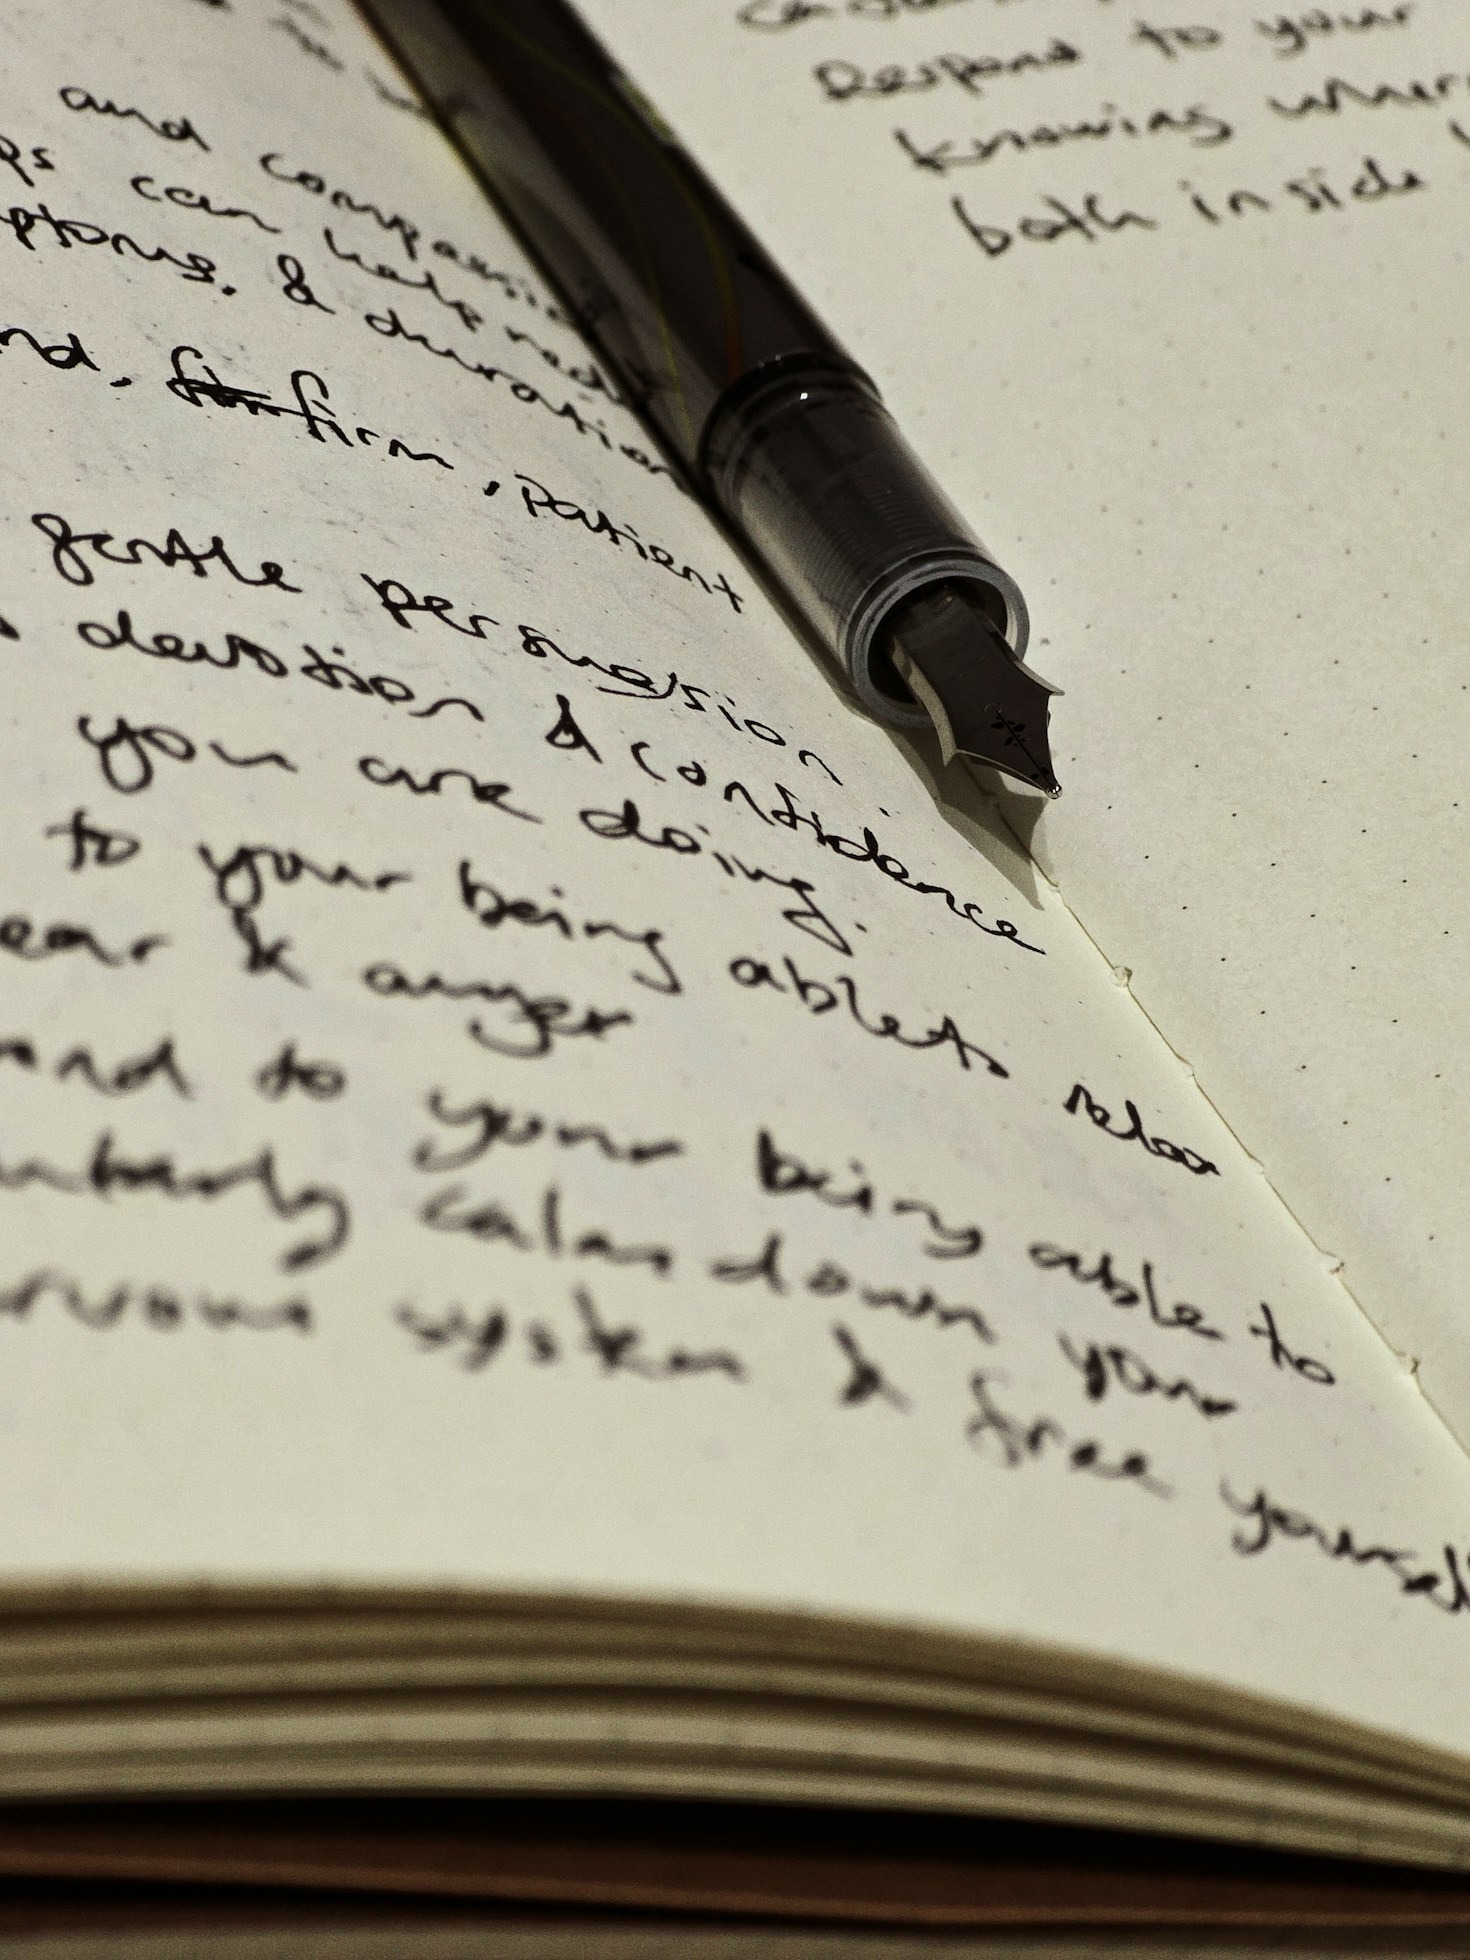 and compassio
ps can help redu
ptoms. & duration
nd, firm, patient
gentle persuasion
devotion & confidence
you are doing.
to your being able to relax
ear & anger
and to your being able to
calm down your
rvous system & free yoursel
Respond to your
knowing wher
both inside